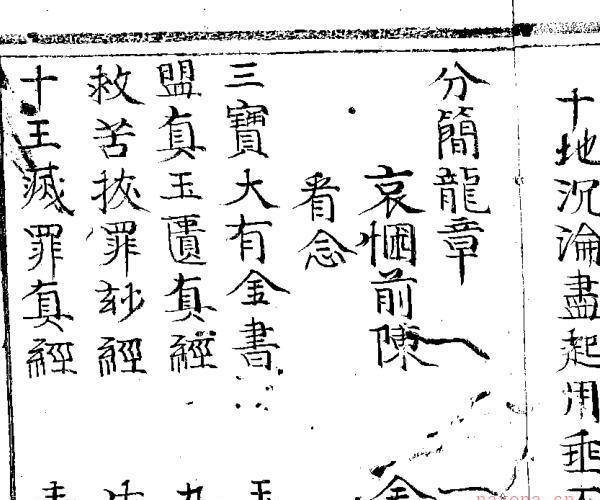 十地沉淪盡起用垂不
分簡龍章
哀悃前陳
看念
三寶大有金書
盟真玉匱真經
救苦拔罪玅經
十王滅罪真經